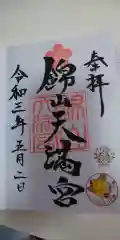 奉拝
錦山天満宮
令和三年五月二日